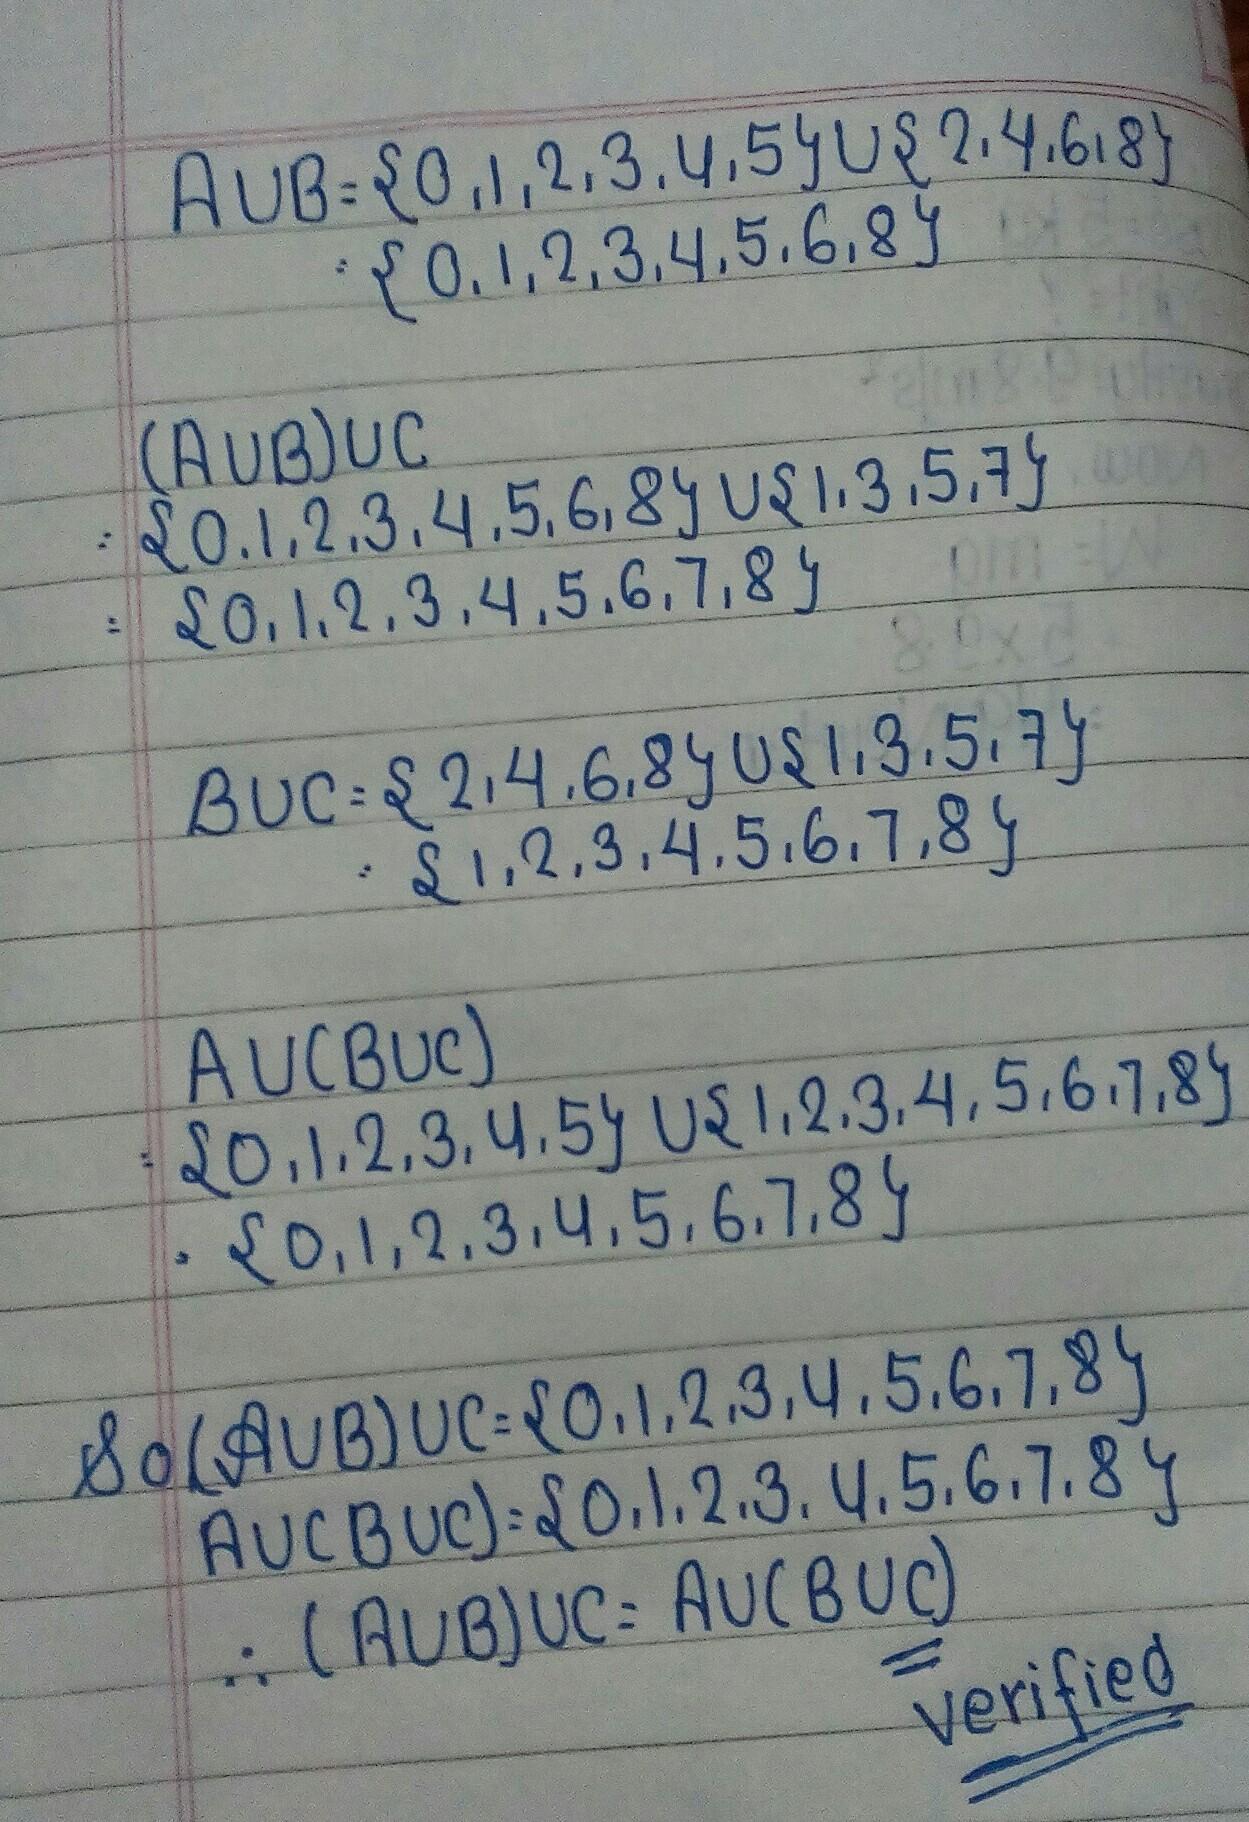 AUB={0,1,2,3,4,5}U{2,4,6,8}
={0,1,2,3,4,5,6,8}
(AUB)UC
={0,1,2,3,4,5,6,8}U{1,3,5,7}
={0,1,2,3,4,5,6,7,8}
BUC={2,4,6,8}U{1,3,5,7}
={1,2,3,4,5,6,7,8}
AU(BUC)
={0,1,2,3,4,5}U{1,2,3,4,5,6,7,8}
={0,1,2,3,4,5,6,7,8}
So(AUB)UC={0,1,2,3,4,5,6,7,8}
AU(BUC)={0,1,2,3,4,5,6,7,8}
∴(AUB)UC=AU(BUC)
verified